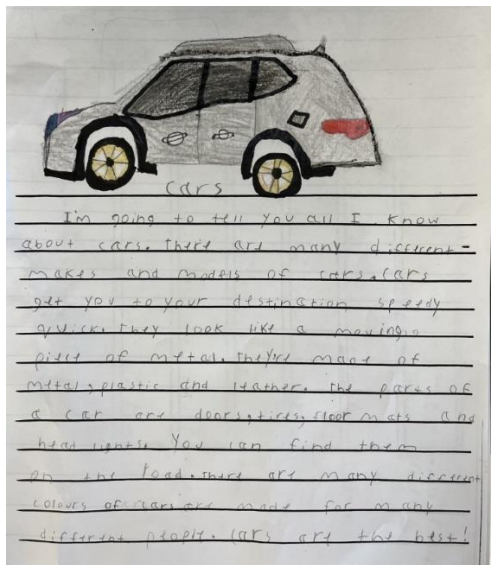 cars
I'm going to tell you all I know
about cars. There are many different
makes and models of cars. Cars
get you to your destination speedy
quick. They look like a moving
piece of metal. They're made of
metal, plastic and leather. The parts of
a car are doors, tires, floor mats and
head lights. You can find them
on the road. There are many different
colours of cars are made for many
different people. Cars are the best!